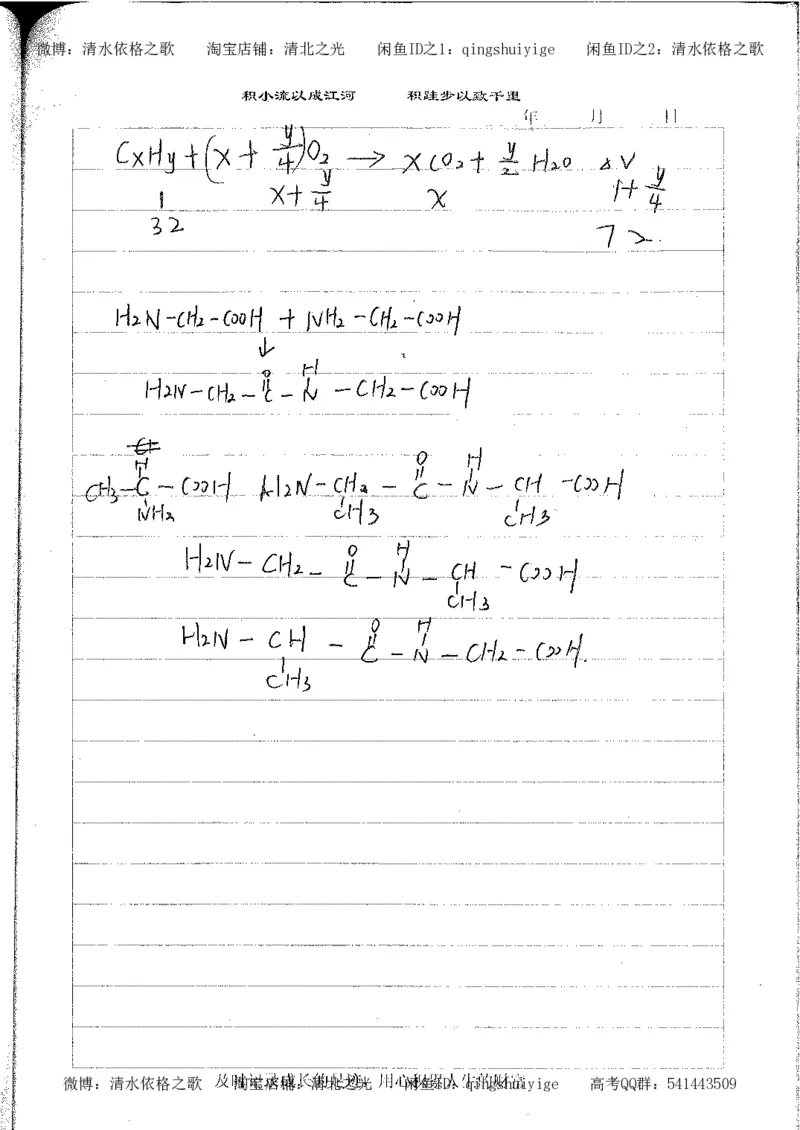 微博：清水依格之歌 淘宝店铺：清北之光 闲鱼ID之1：qingshuiyige 闲鱼ID之2：清水依格之歌
积小流以成江河 积跬步以致千里
年 月 日
CxHy + (x + y/4)O2 → xCO2 + y/2 H2O ΔV
1 x+y/4 x 1+y/4
32 72.
H2N-CH2-COOH + NH2-CH2-COOH
↓
O H
H2N-CH2-C-N-CH2-COOH
H O H
CH3-C-COOH H2N-CH2-C-N-CH-COOH
NH2 CH3 CH3
O H
H2N-CH2-C-N-CH-COOH
CH3
O H
H2N-CH-C-N-CH2-COOH.
CH3
及时记录成长的足迹 用心积累人生的财富
微博：清水依格之歌 淘宝店铺：清北之光 闲鱼ID：qingshuiyige 高考QQ群：541443509